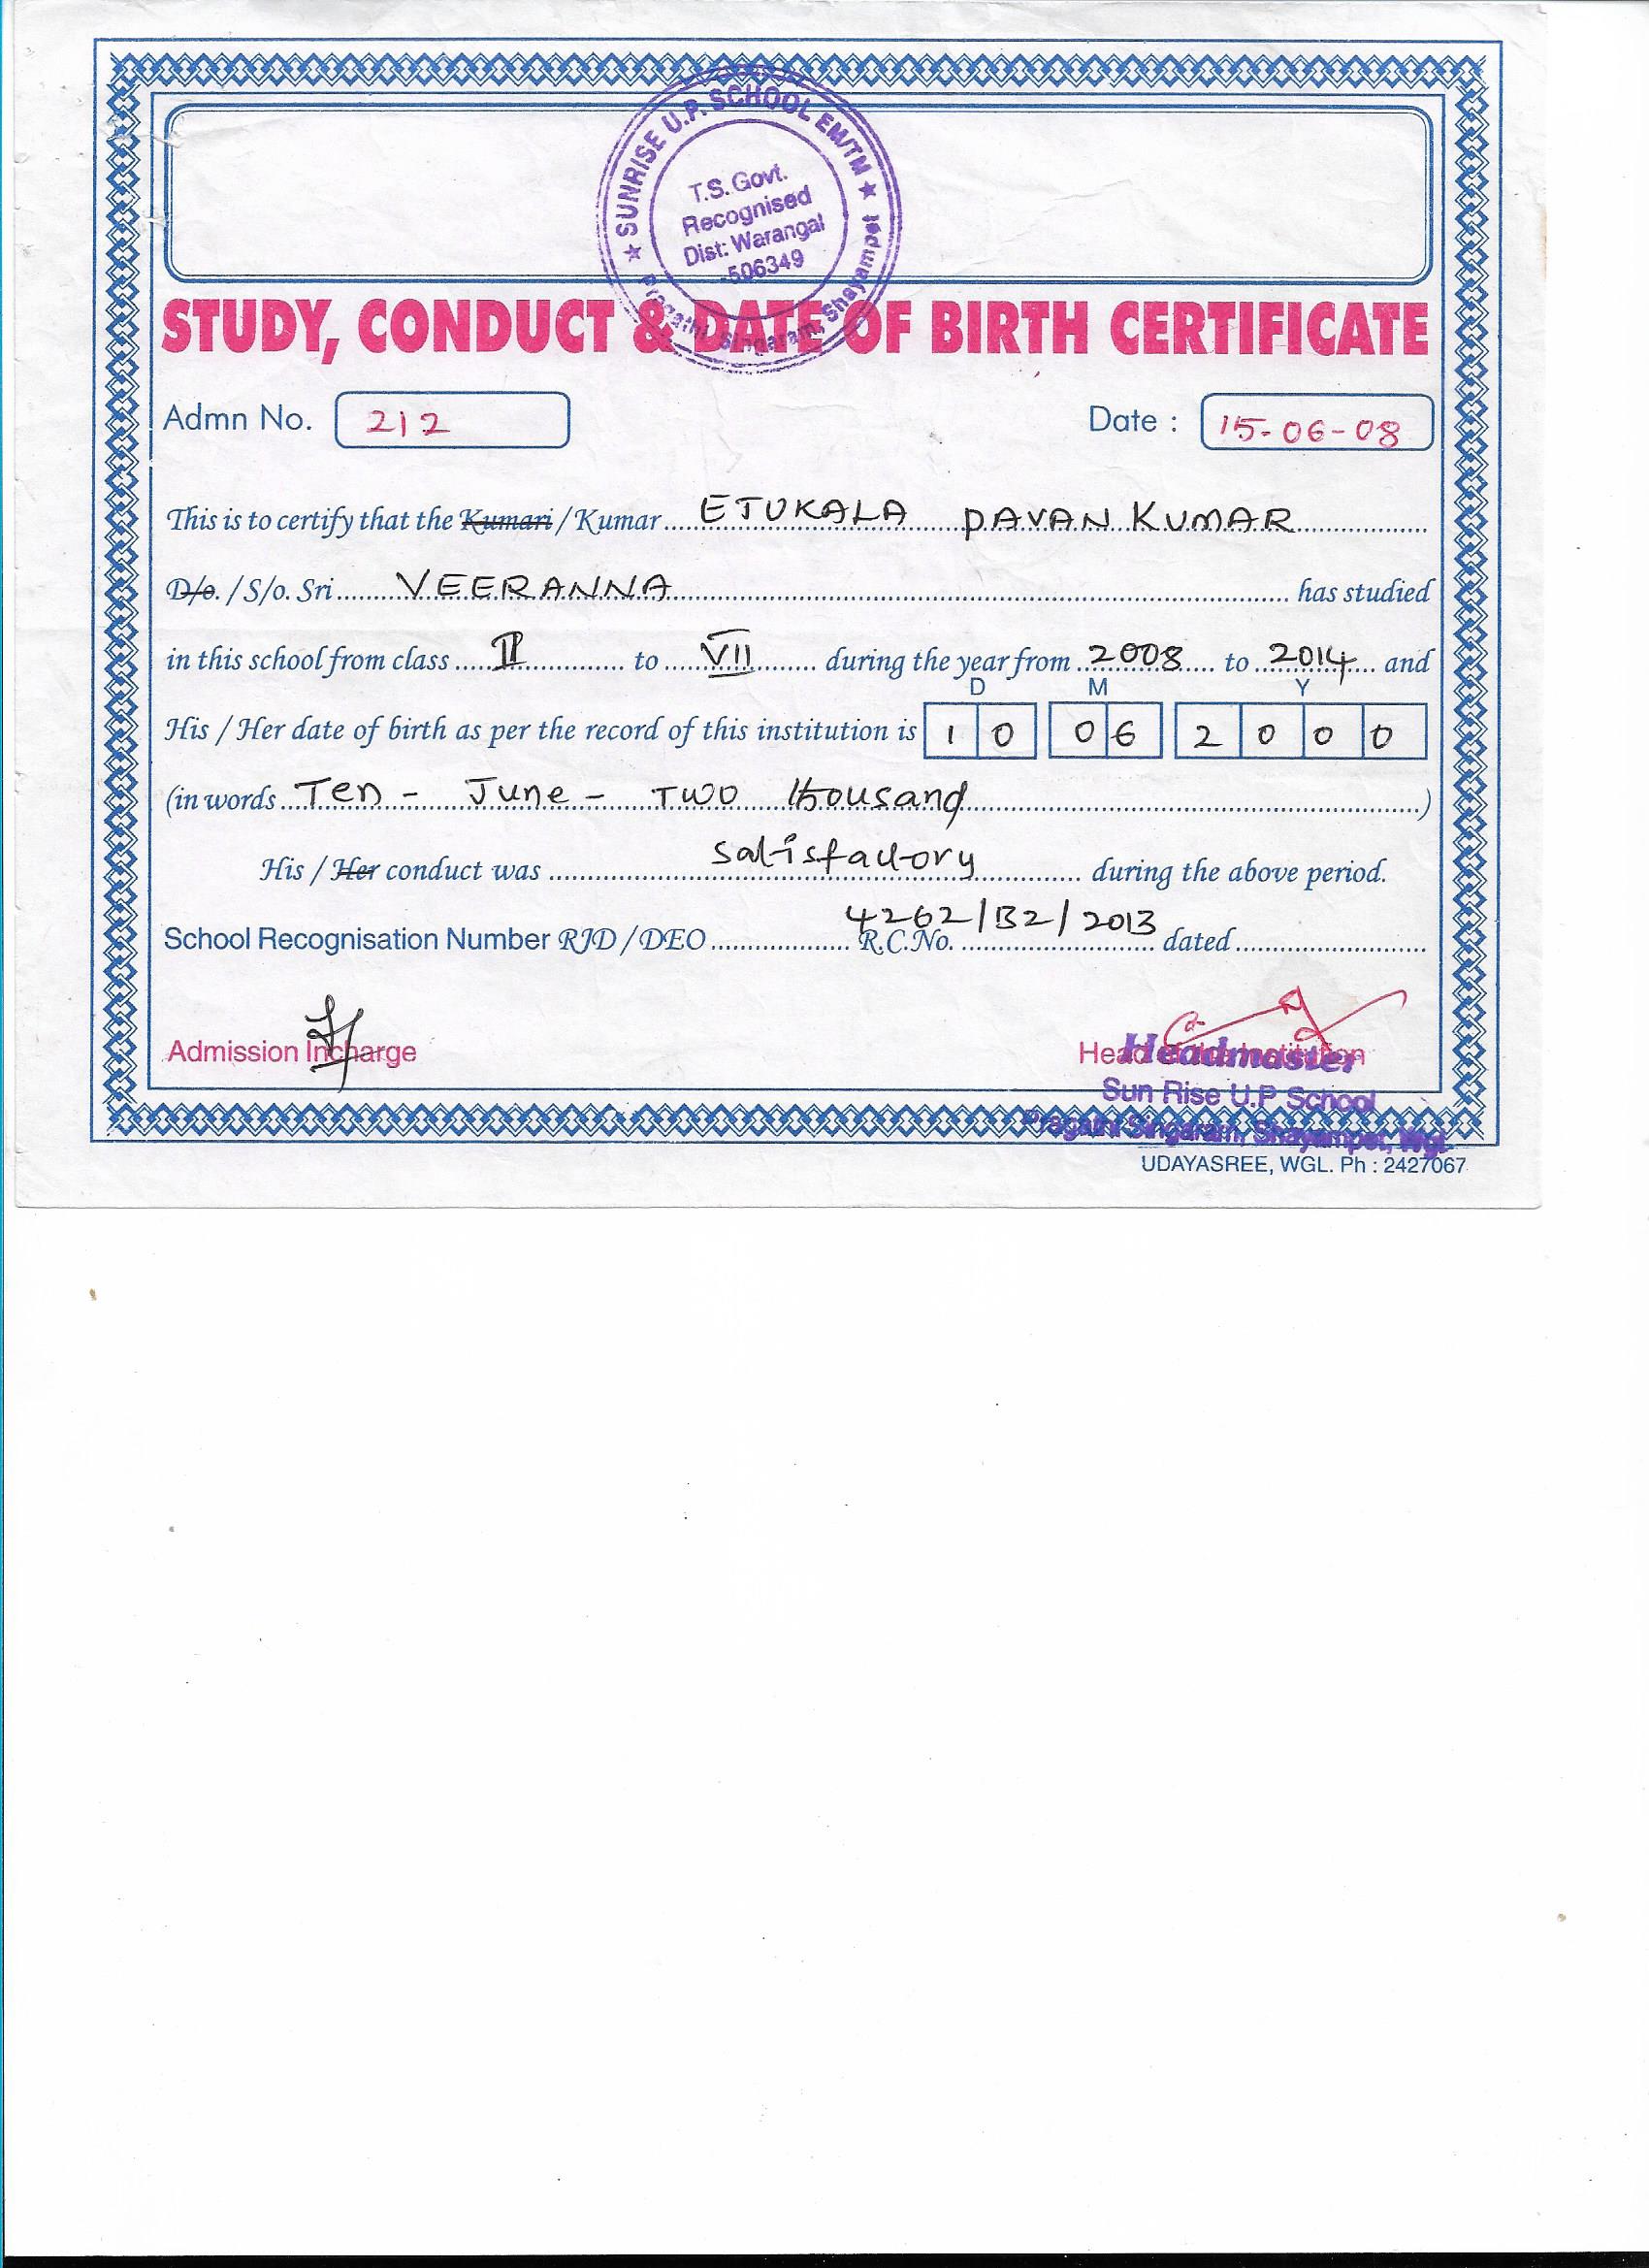 ★ SUNRISE U.P. SCHOOL EM/TM ★
Pragathi Singaram, Shayampet
T.S. Govt.
Recognised
Dist: Warangal
-506349
STUDY, CONDUCT & DATE OF BIRTH CERTIFICATE
Admn No. 212 Date : 15-06-08
This is to certify that the Kumari / Kumar ETUKALA PAVAN KUMAR
D/o. / S/o. Sri VEERANNA has studied
in this school from class II to VII during the year from 2008 to 2014 and
D M Y
His / Her date of birth as per the record of this institution is 10 06 2000
(in words Ten - June - Two thousand)
His / Her conduct was satisfactory during the above period.
School Recognisation Number RJD / DEO R.C.No. 4262/B2/2013 dated
Admission Incharge Head of the Institution
Headmaster
Sun Rise U.P School
Pragathi Singaram, Shayampet, Wgl.
UDAYASREE, WGL. Ph : 2427067